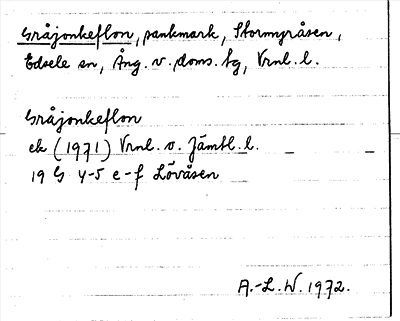 Gråjonkeflon, sankmark, Stormyråsen,
Edsele sn, Ång. v. doms. tg, Vrnl. l.
Gråjonkeflon
ek (1971) Vrnl. o. Jämtl. l.
19 G 4-5 e-f Lövåsen
A.-L. W. 1972.